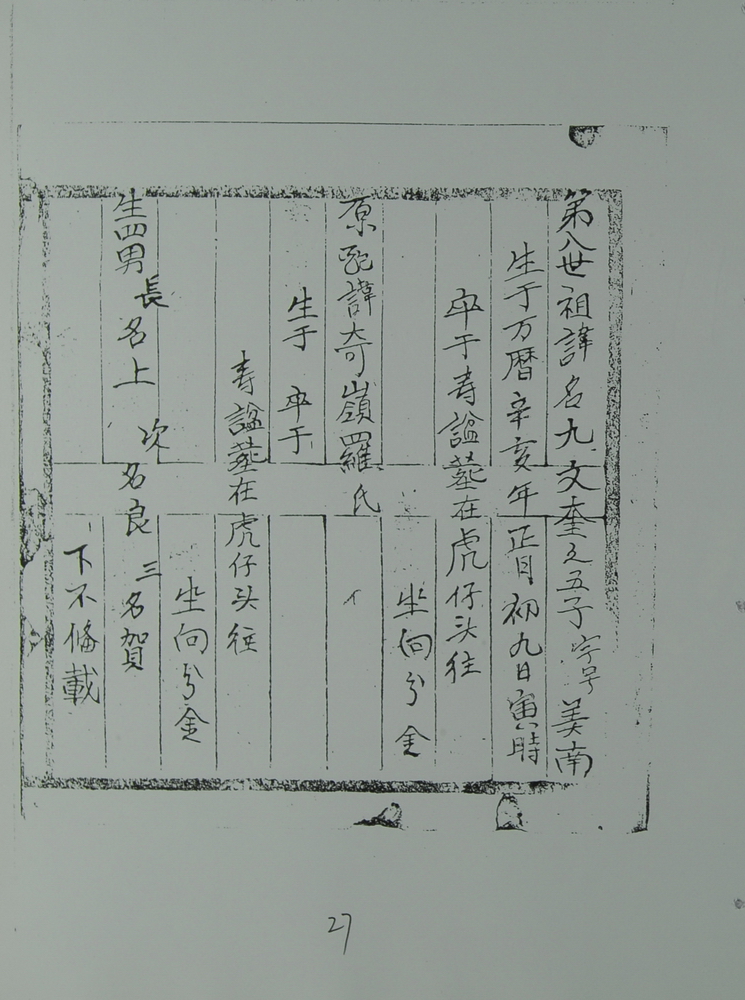 第八世祖諱名九文奎之五子字号美南
生于万曆辛亥年正月初九日寅時
卒于寿諡墓在虎仔头往
坐向分金
原配諱奇嶺羅氏
生于 卒于
寿諡墓在虎仔头往
坐向分金
生四男 長名上 次名良 三名賀
下不俻載
27